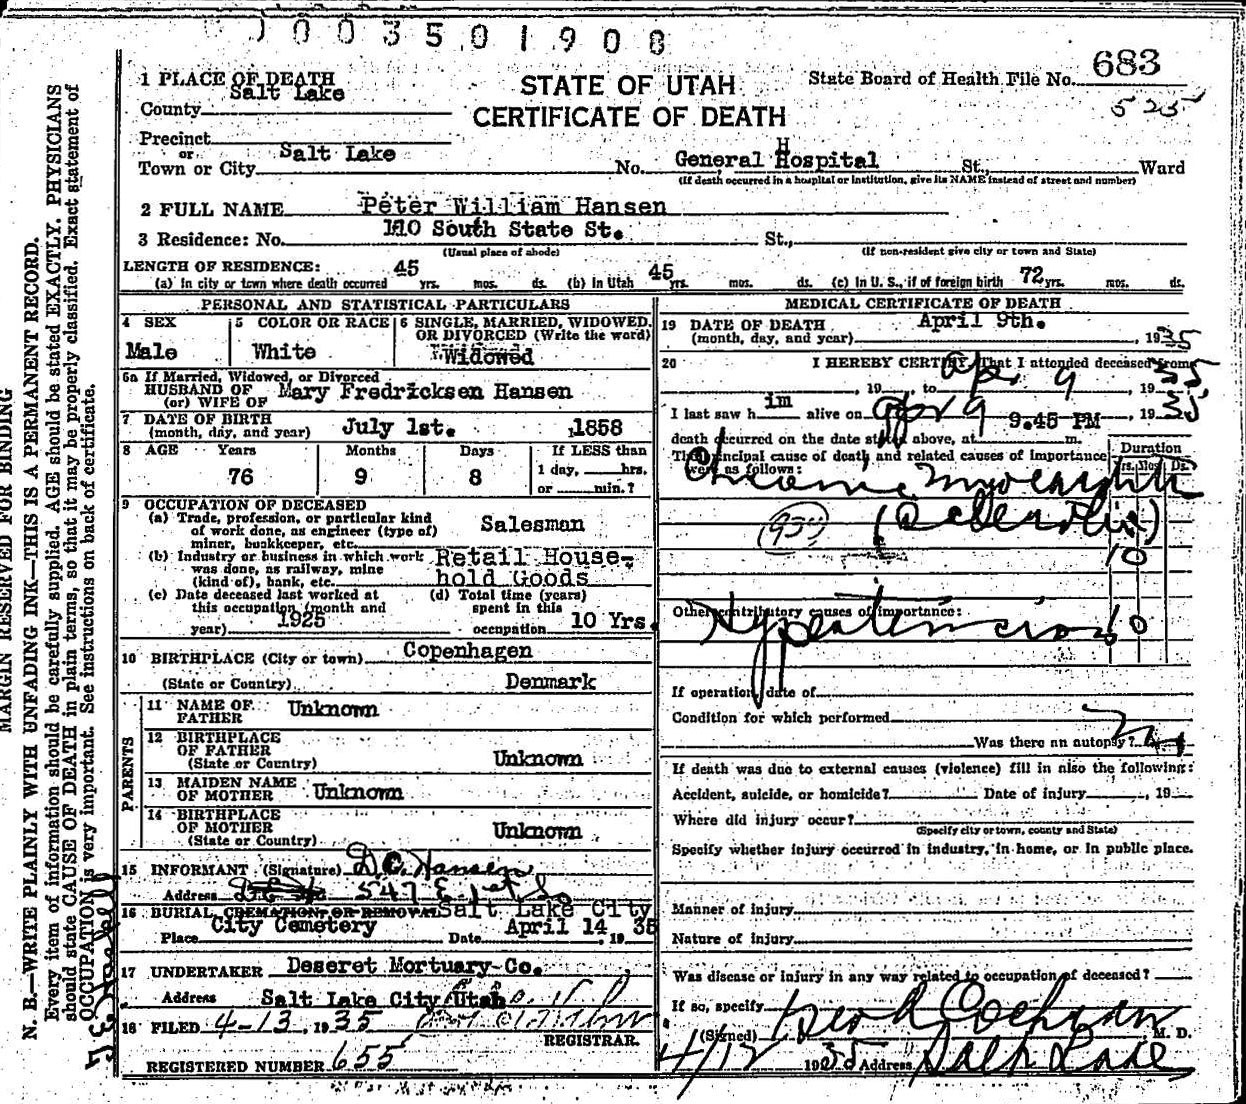 0 0 3 5 0 1 9 0 8
1 PLACE OF DEATH
Salt Lake
County
STATE OF UTAH
CERTIFICATE OF DEATH
State Board of Health File No. 683
525
Precinct
or
Town or City Salt Lake No. General Hospital St., Ward
(If death occurred in a hospital or institution, give its NAME instead of street and number)
2 FULL NAME Peter William Hansen
3 Residence: No. 110 South State St. St.,
(Usual place of abode) (If non-resident give city or town and State)
LENGTH OF RESIDENCE:
(a) In city or town where death occurred 45 yrs. mos. ds. (b) In Utah 45 yrs. mos. ds. (c) In U. S., if of foreign birth 72 yrs. mos. ds.
PERSONAL AND STATISTICAL PARTICULARS
4 SEX
Male
5 COLOR OR RACE
White
6 SINGLE, MARRIED, WIDOWED, OR DIVORCED (Write the word)
Widowed
6a If Married, Widowed, or Divorced
HUSBAND OF
(or) WIFE OF Mary Fredricksen Hansen
7 DATE OF BIRTH
(month, day, and year) July 1st. ,1858
8 AGE Years Months Days If LESS than
76 9 8 1 day, hrs.
or min.?
9 OCCUPATION OF DECEASED
(a) Trade, profession, or particular kind
of work done, as engineer (type of)
miner, bookkeeper, etc. Salesman
(b) Industry or business in which work
was done, as railway, mine
(kind of), bank, etc. Retail House-
hold Goods
(c) Date deceased last worked at
this occupation (month and
year) 1925
(d) Total time (years)
spent in this
occupation 10 Yrs.
10 BIRTHPLACE (City or town) Copenhagen
(State or Country) Denmark
PARENTS
11 NAME OF
FATHER Unknown
12 BIRTHPLACE
OF FATHER
(State or Country) Unknown
13 MAIDEN NAME
OF MOTHER Unknown
14 BIRTHPLACE
OF MOTHER
(State or Country) Unknown
15 INFORMANT (Signature) D.C. Hansen
Address 547 E 1st So
16 BURIAL, CREMATION, OR REMOVAL Salt Lake City
City Cemetery April 14 35
Place Date , 19
17 UNDERTAKER Deseret Mortuary Co.
Address Salt Lake City Utah
18 FILED 4-13, 1935
REGISTRAR.
REGISTERED NUMBER 655
MEDICAL CERTIFICATE OF DEATH
19 DATE OF DEATH April 9th.
(month, day, and year) , 1935
20 I HEREBY CERTIFY, That I attended deceased from
, 19 , to Apr 9 , 1935
I last saw h im alive on Apr 9 , 1935
9.45 PM
death occurred on the date stated above, at m.
The principal cause of death and related causes of importance
were as follows:
Duration
Yrs. Mos. Ds.
Chronic myocarditis
10
Other contributory causes of importance:
Hypertension 10
If operation, date of
Condition for which performed
Was there an autopsy? No
If death was due to external causes (violence) fill in also the following:
Accident, suicide, or homicide? Date of injury , 19
Where did injury occur?
(Specify city or town, county and State)
Specify whether injury occurred in industry, in home, or in public place.
Manner of injury
Nature of injury
Was disease or injury in any way related to occupation of deceased?
If so, specify
(Signed) Geo A Cochran M. D.
4/12 1935 Address Salt Lake
MARGIN RESERVED FOR BINDING
N. B.—WRITE PLAINLY WITH UNFADING INK—THIS IS A PERMANENT RECORD.
Every item of information should be carefully supplied. AGE should be stated EXACTLY. PHYSICIANS
should state CAUSE OF DEATH in plain terms, so that it may be properly classified. Exact statement of
OCCUPATION is very important. See instructions on back of certificate.